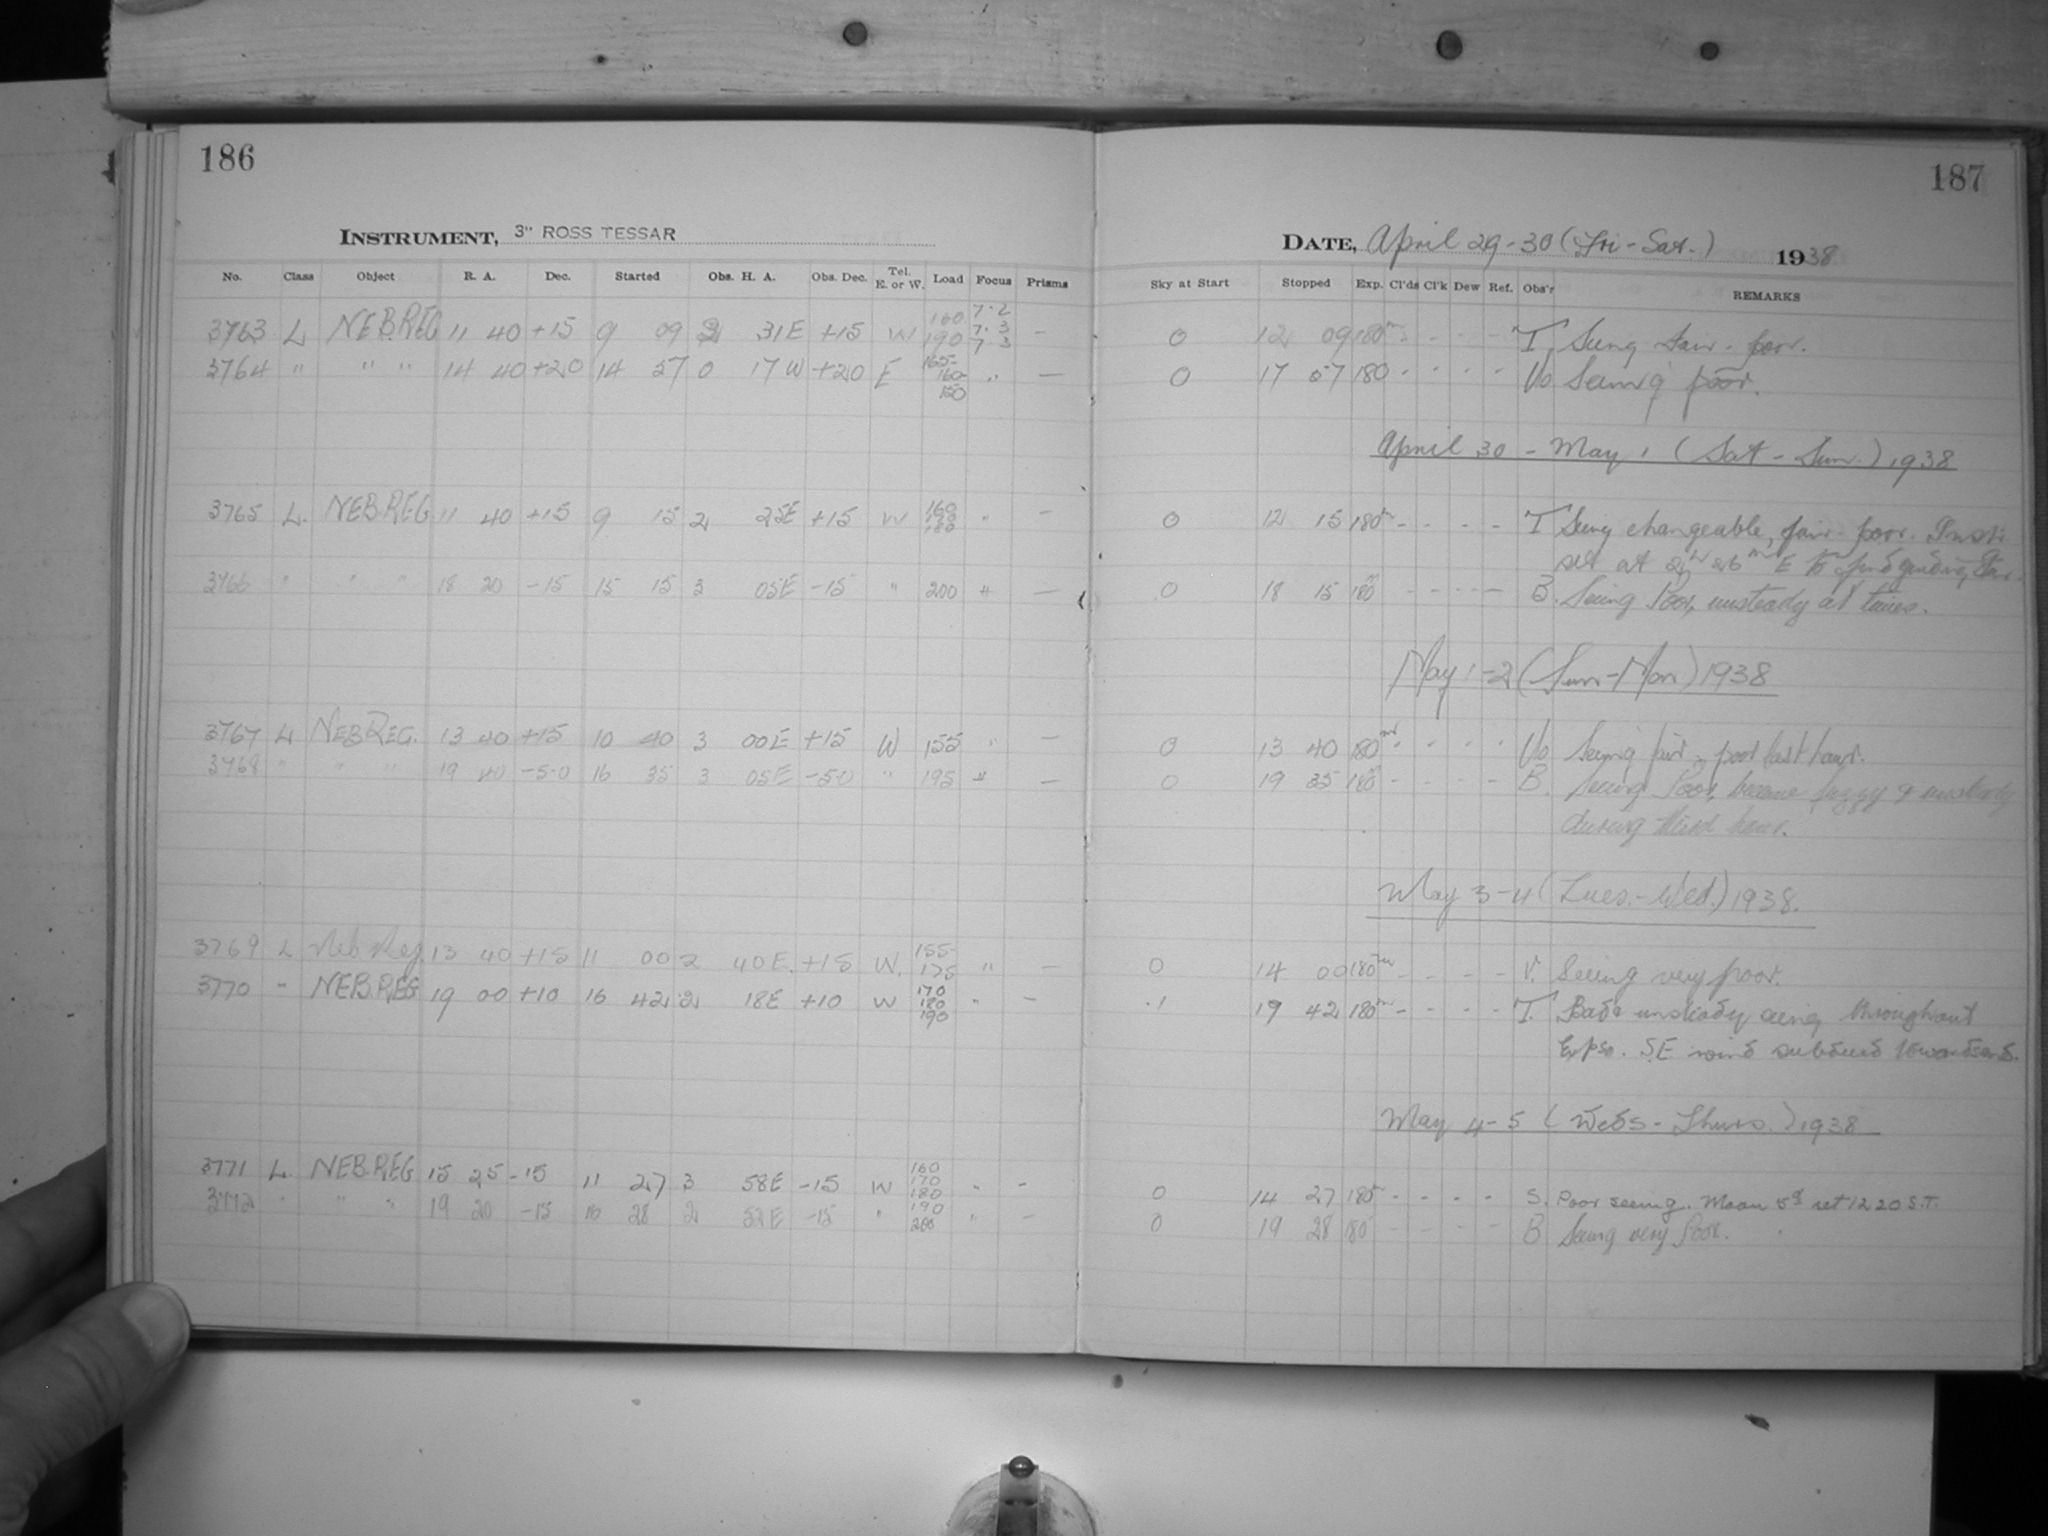 186
187
INSTRUMENT, 3" ROSS TESSAR
DATE, April 29-30 (Fri-Sat.) 1938
No. Class Object R. A. Dec. Started Obs. H. A. Obs. Dec. Tel. E. or W. Load Focus Prisms Sky at Start Stopped Exp. Cl'ds Cl'k Dew Ref. Obs'r REMARKS
3763 L NEB.REG 11 40 +15 9 09 2 31E +15 W 160 190 7.2 7.3 7.3 — 0 12 09 180m - - - - T. Seing fair - poor.
3764 " " " 14 40 +20 14 57 0 17W +20 E 165- 160- 150 " — 0 17 57 180 - - - - Vo Seeing poor.
April 30 - May 1 (Sat - Sun.) 1938
3765 L. NEB.REG 11 40 +15 9 15 2 25E +15 W 160 180 " — 0 12 15 180m - - - - T Seing changeable, fair-poor. Instr.
set at 2h 26m E to find guiding star.
3766 " " " 18 20 -15 15 15 3 05E -15 " 200 " — 0 18 15 180m - - - - B. Seeing Poor, unsteady at times.
May 1-2 (Sun-Mon) 1938
3767 L NEB REG. 13 40 +15 10 40 3 00E +15 W 155 " — 0 13 40 180m - - - - Vo Seeing fair - poor last hour.
3768 " " " 19 40 -50 16 35 3 05E -50 " 195 " — 0 19 35 180m - - - - B. Seeing Poor, became fuzzy & unsteady
during third hour.
May 3-4 (Tues.-Wed.) 1938.
3769 L Neb Reg. 13 40 +15 11 00 2 40E. +15 W. 155- 175 " — 0 14 00 180m - - - - V. Seeing very poor.
3770 " NEB.REG 19 00 +10 16 42 2 18E +10 W 170 180 190 " — .1 19 42 180m - - - - T. Bad unsteady seing throughout
Expo. S.E wind subdued towards end.
May 4-5 (Weds - Thurs.) 1938
3771 L. NEB.REG 15 25 -15 11 27 3 58E -15 W 160 170 180 " - 0 14 27 180 - - - - S. Poor seeing. Moon 5d set 12 20 S.T.
3772 " " " 19 20 -15 16 28 2 52E -15 " 190 200 " — 0 19 28 180 - - - - B Seeing very Poor.